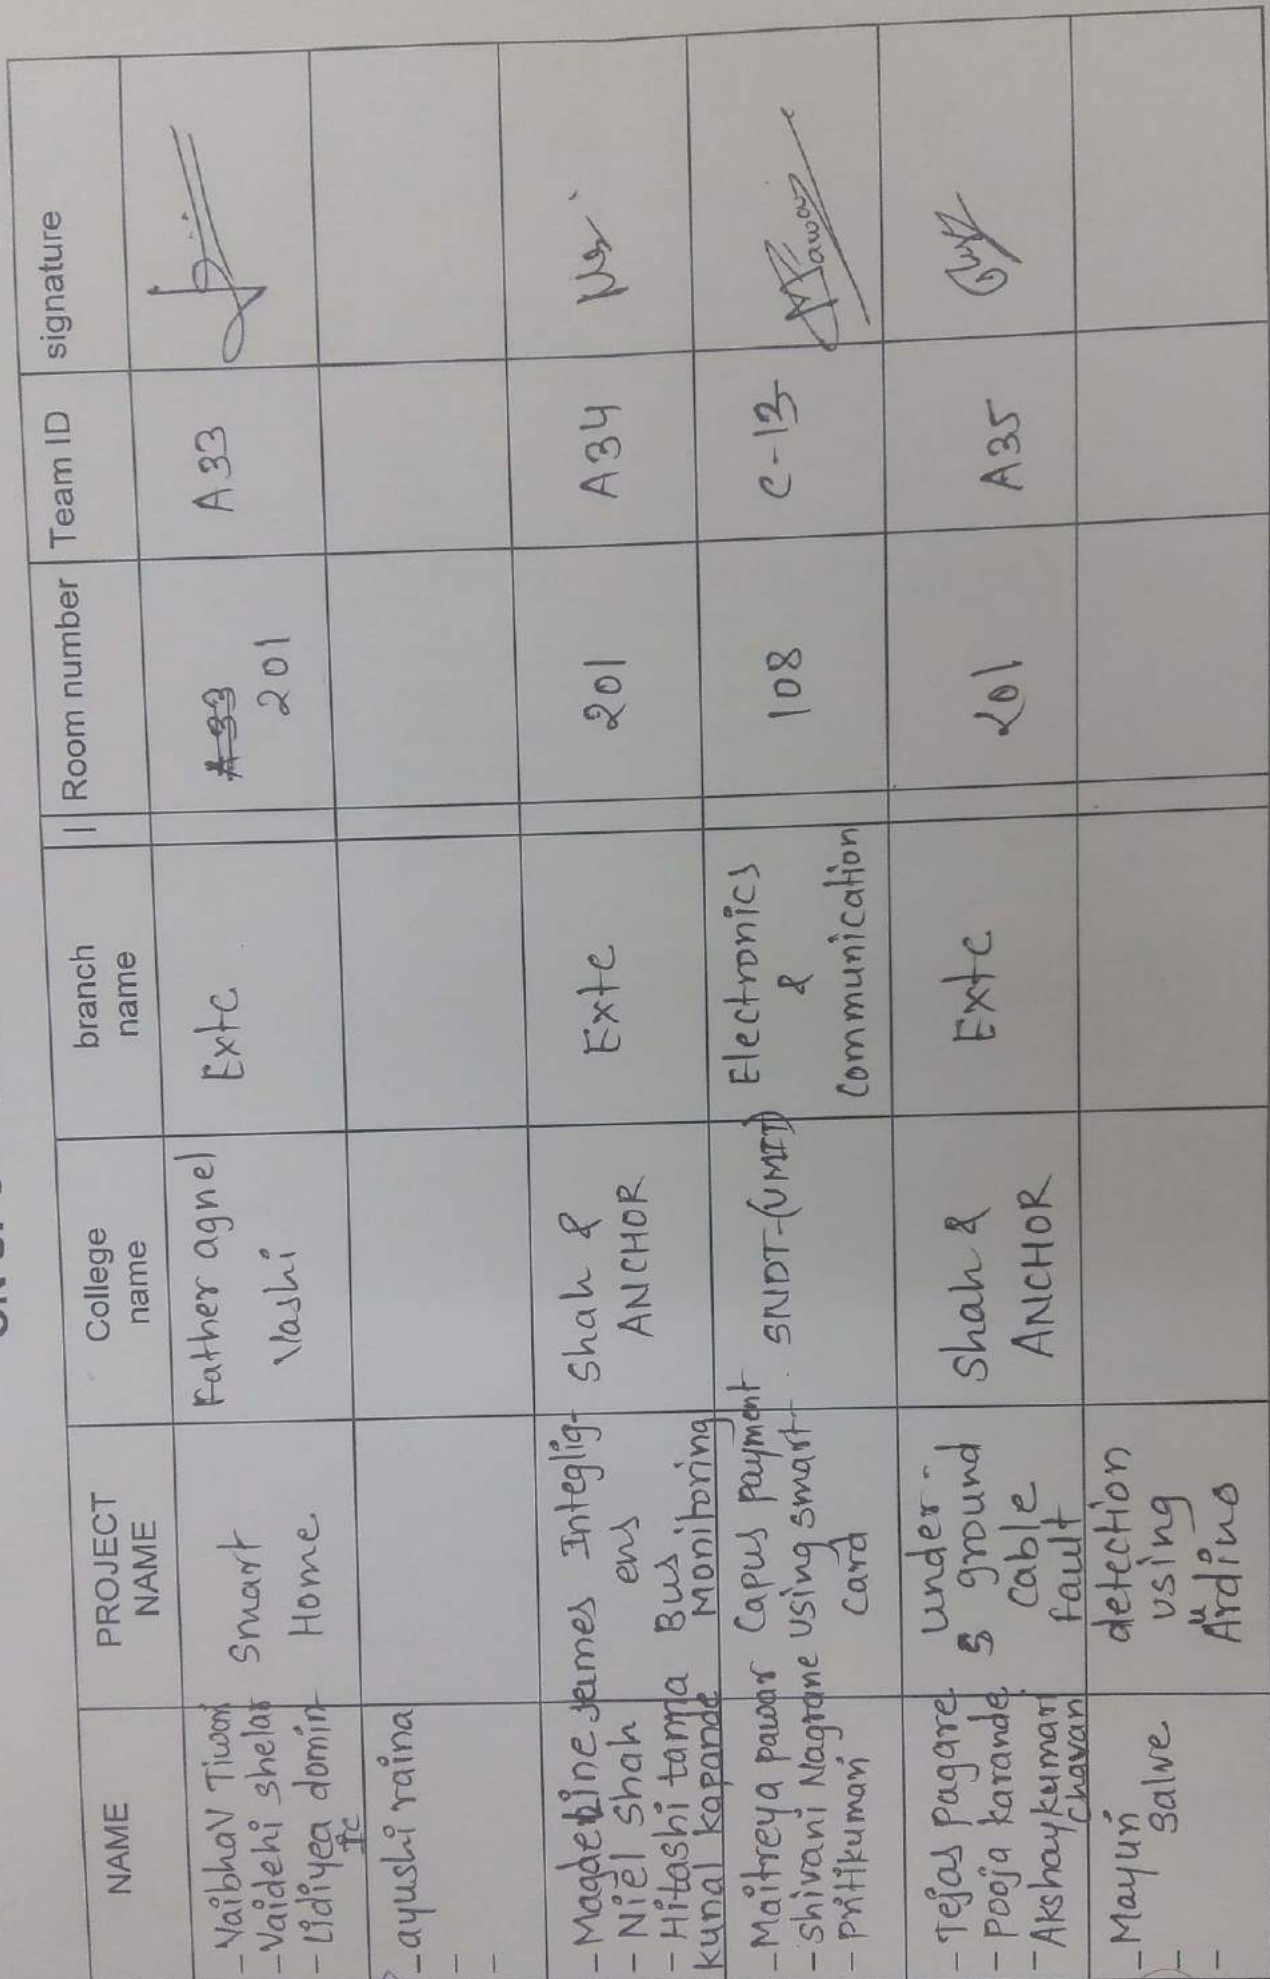 NAME
PROJECT NAME
College name
branch name
Room number
Team ID
signature
- Vaibhav Tiwari
- Vaidehi shelar
- Lidiyea domin
ic
Smart
Home
Father agnel
Vashi
Extc
A33
201
A33
- ayushi raina
-
-
- Magdeline James
- Niel Shah
- Hitashi tamna
kunal kapande
Integlig-
ens
Bus
Monitoring
Shah &
ANCHOR
Extc
201
A34
- Maitreya pawar
- Shivani Nagrane
- pritikumari
Capus payment
using smart
card
SNDT-(UMIT)
Electronics
&
Communication
108
C-13
Pawar
- Tejas pagare
- Pooja karande
- Akshaykumar
chavan
under-
ground
cable
fault
Shah &
ANCHOR
Extc
201
A35
- Mayuri
- Salve
-
detection
using
Arduino